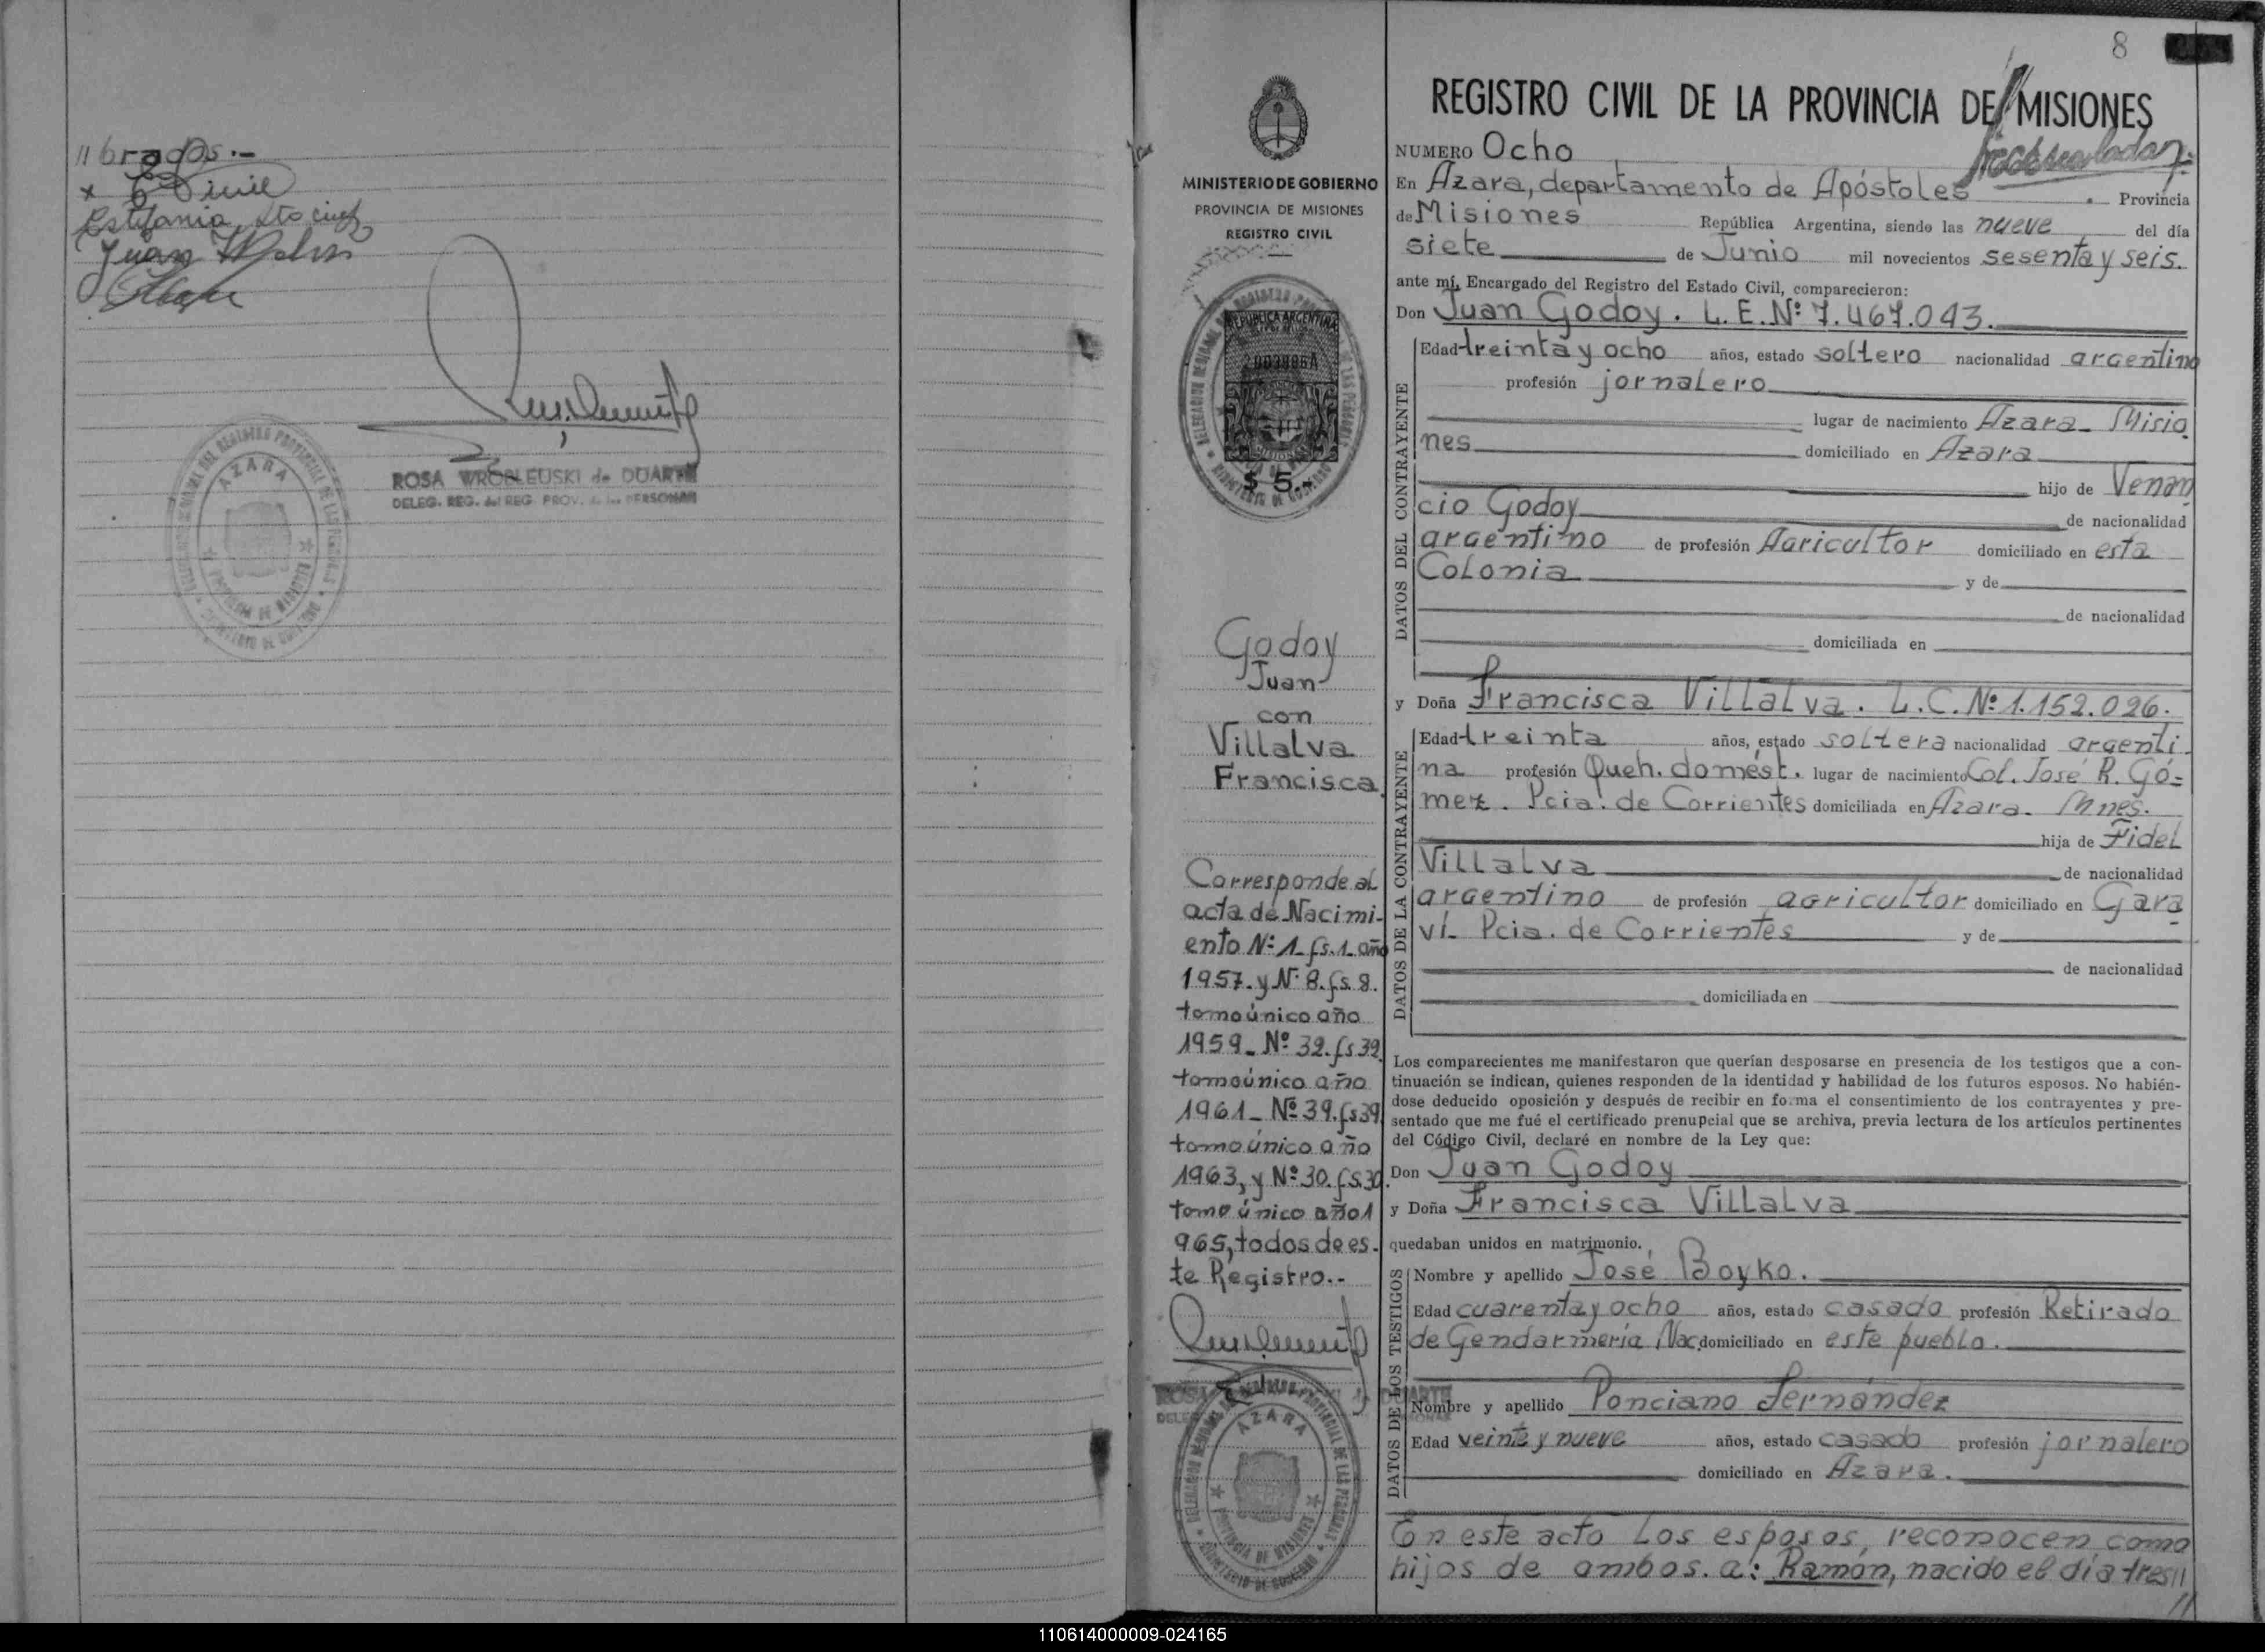 // brados.-
Juan
ROSA WROBLEUSKI de DUARTE
DELEG. REG. del REG. PROV. de las PERSONAS
AZARA
8
MINISTERIO DE GOBIERNO
PROVINCIA DE MISIONES
REGISTRO CIVIL
REPUBLICA ARGENTINA
$ 5.-
Godoy
Juan
con
Villalva
Francisca
Corresponde al
acta de Nacimi-
ento Nº 1 fs. 1 año
1957. y Nº 8. fs 8.
tomo único año
1959_ Nº 32. fs 32
tomo único año
1961_ Nº 39. fs 39
tomo único año
1963, y Nº 30. fs. 30.
tomo único año 1
965, todos de es-
te Registro.-
AZARA
PROVINCIA DE MISIONES
REGISTRO CIVIL DE LA PROVINCIA DE MISIONES
NUMERO Ocho
En Azara, departamento de Apóstoles . Provincia
de Misiones República Argentina, siendo las nueve del día
siete de Junio mil novecientos sesenta y seis.
ante mí, Encargado del Registro del Estado Civil, comparecieron:
Don Juan Godoy. L.E.Nº 7.467.043.
DATOS DEL CONTRAYENTE
Edad treinta y ocho años, estado soltero nacionalidad argentino
profesión jornalero
lugar de nacimiento Azara_ Misio
nes domiciliado en Azara
hijo de Venan
cio Godoy de nacionalidad
argentino de profesión Agricultor domiciliado en esta
Colonia y de
de nacionalidad
domiciliada en
y Doña Francisca Villalva. L.C.Nº 1.152.026.
DATOS DE LA CONTRAYENTE
Edad treinta años, estado soltera nacionalidad argenti-
na profesión Queh. domést. lugar de nacimiento Col. José R. Gó-
mez. Pcia. de Corrientes domiciliada en Azara. Mnes.
hija de Fidel
Villalva de nacionalidad
argentino de profesión agricultor domiciliado en Gara
ví_ Pcia. de Corrientes y de
de nacionalidad
domiciliada en
Los comparecientes me manifestaron que querían desposarse en presencia de los testigos que a con-
tinuación se indican, quienes responden de la identidad y habilidad de los futuros esposos. No habién-
dose deducido oposición y después de recibir en forma el consentimiento de los contrayentes y pre-
sentado que me fué el certificado prenupcial que se archiva, previa lectura de los artículos pertinentes
del Código Civil, declaré en nombre de la Ley que:
Don Juan Godoy
y Doña Francisca Villalva
quedaban unidos en matrimonio.
DATOS DE LOS TESTIGOS
Nombre y apellido José Boyko.
Edad cuarenta y ocho años, estado casado profesión Retirado
de Gendarmería Nac. domiciliado en este pueblo.
Nombre y apellido Ponciano Fernández
Edad veinte y nueve años, estado casado profesión jornalero
domiciliado en Azara.
En este acto los esposos, reconocen como
hijos de ambos. a: Ramón, nacido el día tres//
//
110614000009-024165